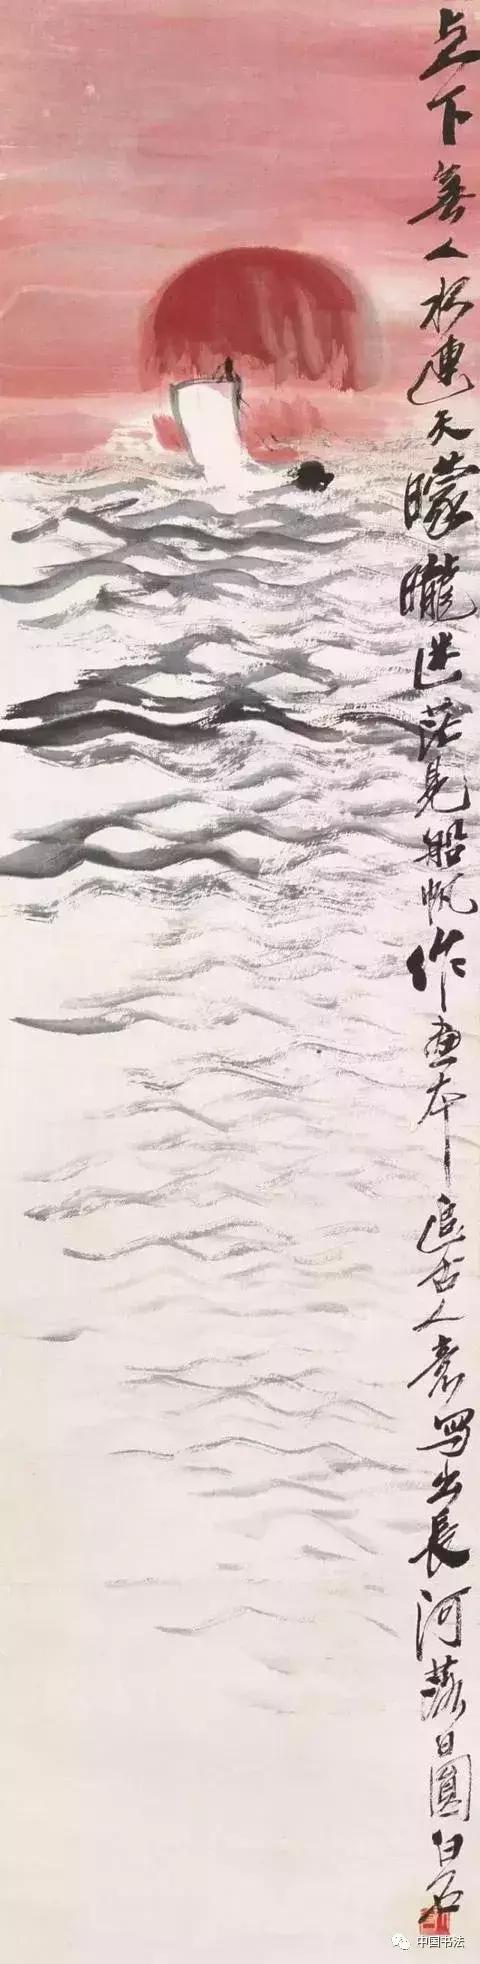 下無人連天曚曨迷茫見船帆作畫本追古人意寫出長河落日圓白石
中国书法